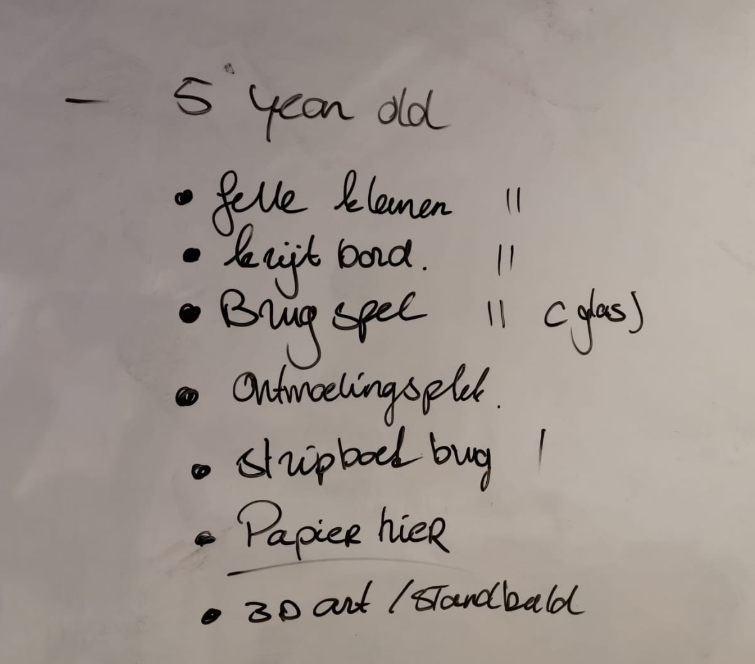 - 5 year old
• felle kleuren "
• krijt bord. "
• Brug spel " (glas)
• Ontmoetingsplek.
• stripboek brug |
• Papier hier
• 3D art / standbeeld